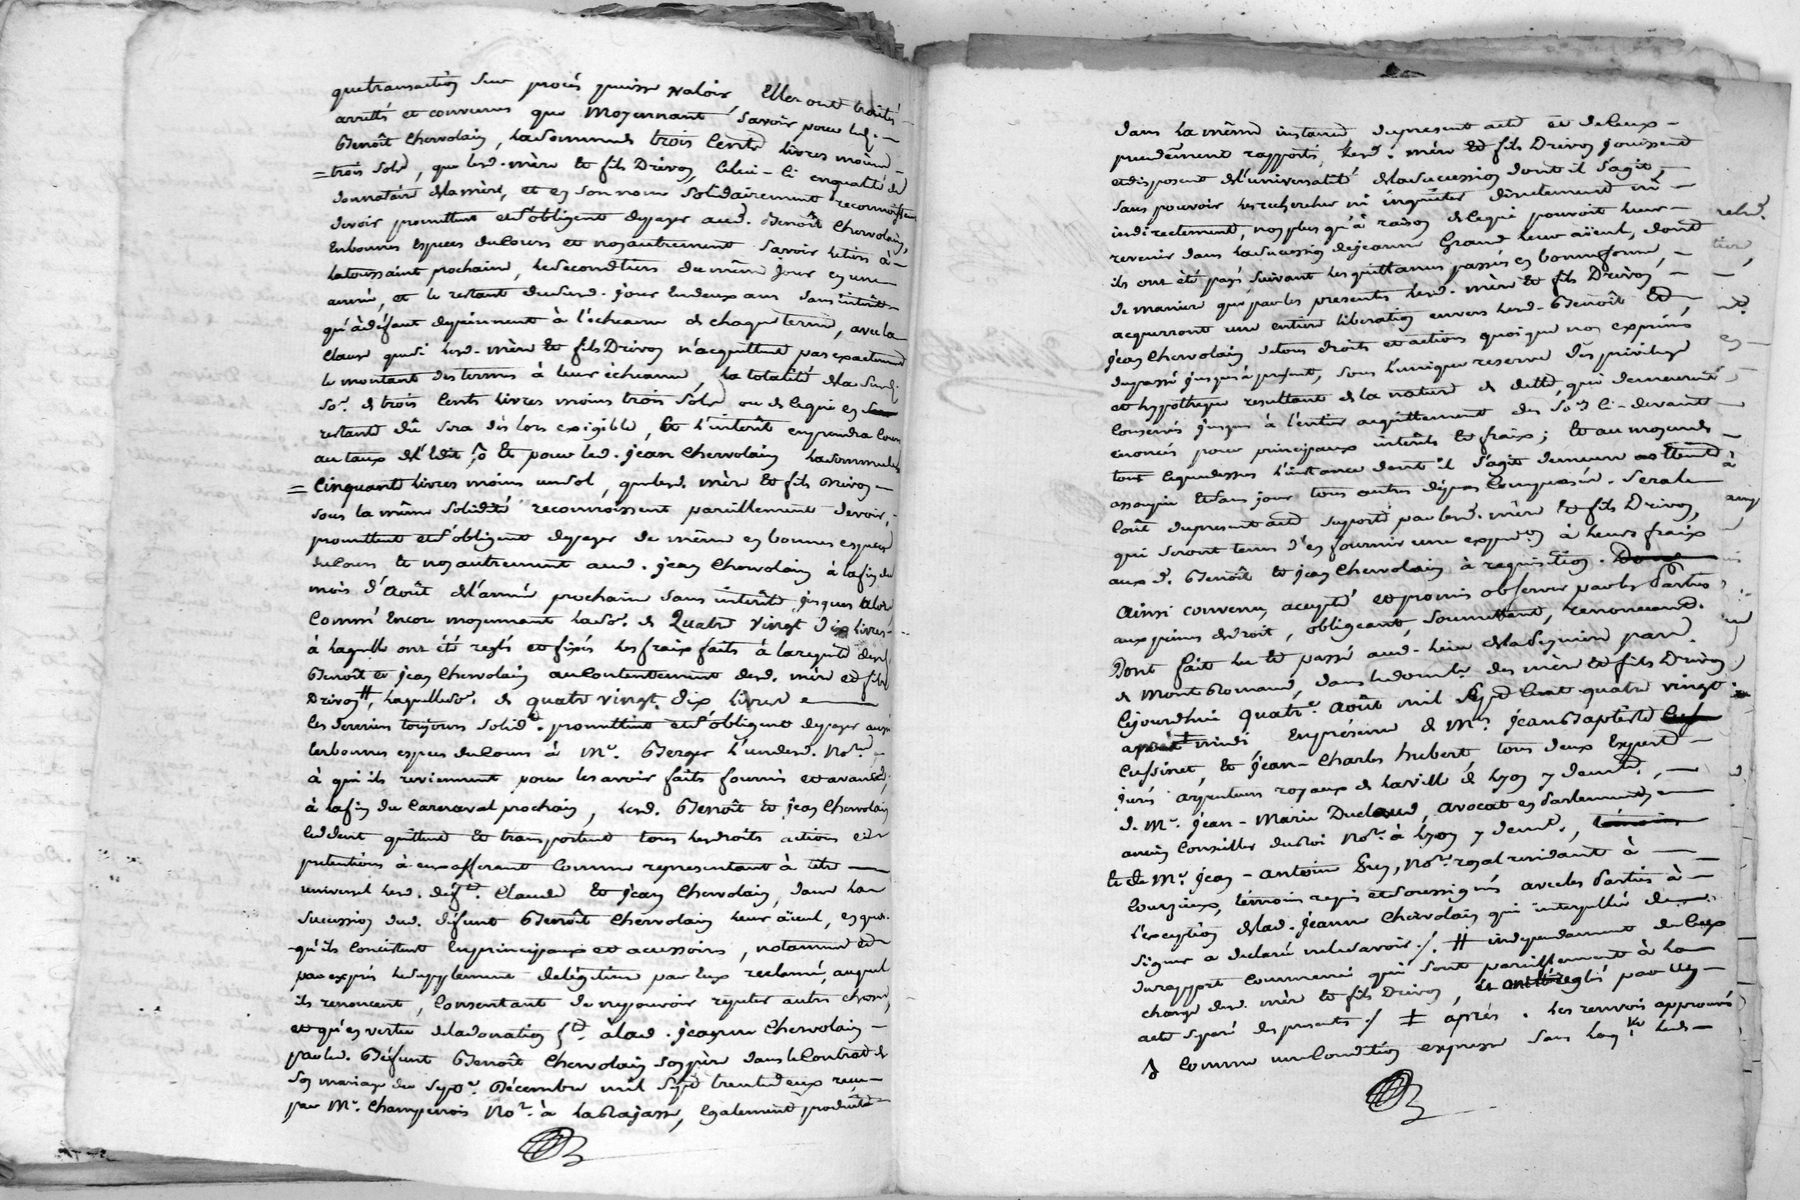 que transaction sur procés puisse valoir Elles ont traités
arrettés et convenus que Moyennant Savoir pour led. –
Benoît Chervolain, la Somme de trois Cents livres moins –
= trois Sols, que lesd. mère et fils Drivon, Celui-ci en qualité de
donnataire de sa mère, et en Son nom Solidairement reconnoissent
devoir promettent et S'obligent de payer aud. Benoît Chervolain,
En bonnes Especes du Cours et non autrement Savoir le tiers à –
la toussaint prochaine, le Second tiers du même jour en une
année, et le restant dud. jour En deux ans Sans intérêts
qu'à défaut de payement à l'echeance de chaque terme, avec la
Clause que Si lesd. mère et fils Drivon n'acquittent pas exactement
le montant des termes à leur echeance, la totalité de la Susd.
So.e de trois Cents livres moins trois Sols ou de ce qui en
restant dû Sera dès lors exigible, et l'intérêt en prendra Cours
au taux de l'Edit, et pour led. jean Chervolain la Somme de
= Cinquante livres moins un Sol, que lesd. mère et fils Drivon –
Sous la même Solidité reconnoissent pareillement devoir, –
promettent et S'obligent de payer de même en bonnes especes
du Cours et non autrement aud. jean Chervolain à la fin du
mois d'Août de l'année prochaine Sans intérêts jusques alors
Comme Encore moyennant la So.e de Quatre vingt dix livres
à laquelle ont été reglés et fixés les fraix faits à la requete desd.
Benoît et jean Chervolain au Contentement desd. mère et fils
Drivon #, laquelle So.e de quatre vingt dix livres
les derniers toujours Solid.t promettent et S'obligent de payer aussi
En bonnes especes du Cours à M.e Berger l'un desd. No.res
à qui ils reviennent pour les avoir faits fournis et avancés,
à la fin du Carnaval prochain, lesd. Benoît et jean Chervolain
Cedent quittent et transportent tous les droits actions et
prétentions à eux afferant Comme representant à titre
universel lesd. def.ts Claude et jean Chervolain, dans la
Succession dud. défunt Benoît Chervolain leur aïeul, en quoi
qu'ils Consistent En principaux et accessoires, notamment et
par exprès le Supplement de légitime par Eux reclamé, auquel
ils renoncent, Consentant de ne pouvoir repeter autre chose,
et qu'en vertu de la donation f.te à lad. jeanne Chervolain –
par led. défunt Benoît Chervolain Son père dans le Contrat de
Son mariage du Sept.e Décembre mil Sept trente deux reçu
par M.e Champenois No.re à La Rajasse, Egalement produite
dans la même instance du present acte et de Ceux –
precedemment rapportés, lesd. mère et fils Drivon jouissent
et disposent de l'universalité de la Succession dont il S'agit
Sans pouvoir les rechercher ni inquiéter directement ni –
indirectement, non plus qu'à raison de ce qui pouvoit leur –
revenir dans la Succession de jeanne Grand leur aïeul, dont
ils ont été payé Suivant les quittances passées en bonne forme, –
de maniere que par les presentes lesd. mère et fils Drivon –
acquerront une entiere liberation envers lesd. Benoît et
jean Chervolain de tous droits et actions quoique non exprimés
du passé jusques à présent, Sous l'unique reserve des privileges
et hypotheque resultant de la nature de dette, qui demeurent
Conservés jusques à l'entier acquittement des So.es Ci-devant
enoncés pour principaux intérêts et fraix; et au moyen de –
tout Ce que dessus l'instance dont il S'agit demeure
assoupie et Sans jour tous autres dépens Compensés. Sera le
Coût du present acte Suporté par lesd. mère et fils Drivon,
qui Seront tenus d'en fournir une exped.on à leurs fraix
aux d. Benoît et jean Chervolain à requisition.
Ainsi convenu accepté et promis observer par les Parties
aux peines de droit, obligeant, Soumettant, renonceant.
Dont fait lu et passé aud. lieu de la Seigneurie par.
de Mont Romand, dans le domicile des mère et fils Drivon
Cejourdhui quatre Août mil Sept Cent quatre vingt
midi En présence de M.rs jean Baptiste
Cussinet, et jean-Charles hubert, tous deux Expert –
jurés arpenteurs royaux de la ville de Lyon y demt., –
de M.e jean-Marie Duclaud, avocat en Parlement,
ancien Conseiller du Roi No.re à Lyon y demt.,
et de M.e jean-antoine Guy, No.re royal residant à –
Courzieux, témoins requis et Soussignés avec les Parties à –
l'exception de lad. jeanne Chervolain qui interpellée de
Signer a declaré ne le Savoir ./. # independamment de Ceux
du rapport Commencé qui Sont pareillement à la
charge desd. mère et fils Drivon, reglés par un
acte Separé des presentes ./ ‡ après . Les renvois approuvés
& Comme une Condition expresse Sans laq.lle lesd. –